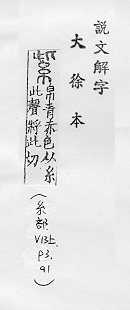 說文解字
大徐本
紫帛青赤色从糸
此聲將此切
(糸部
V13上.
P3.
91)